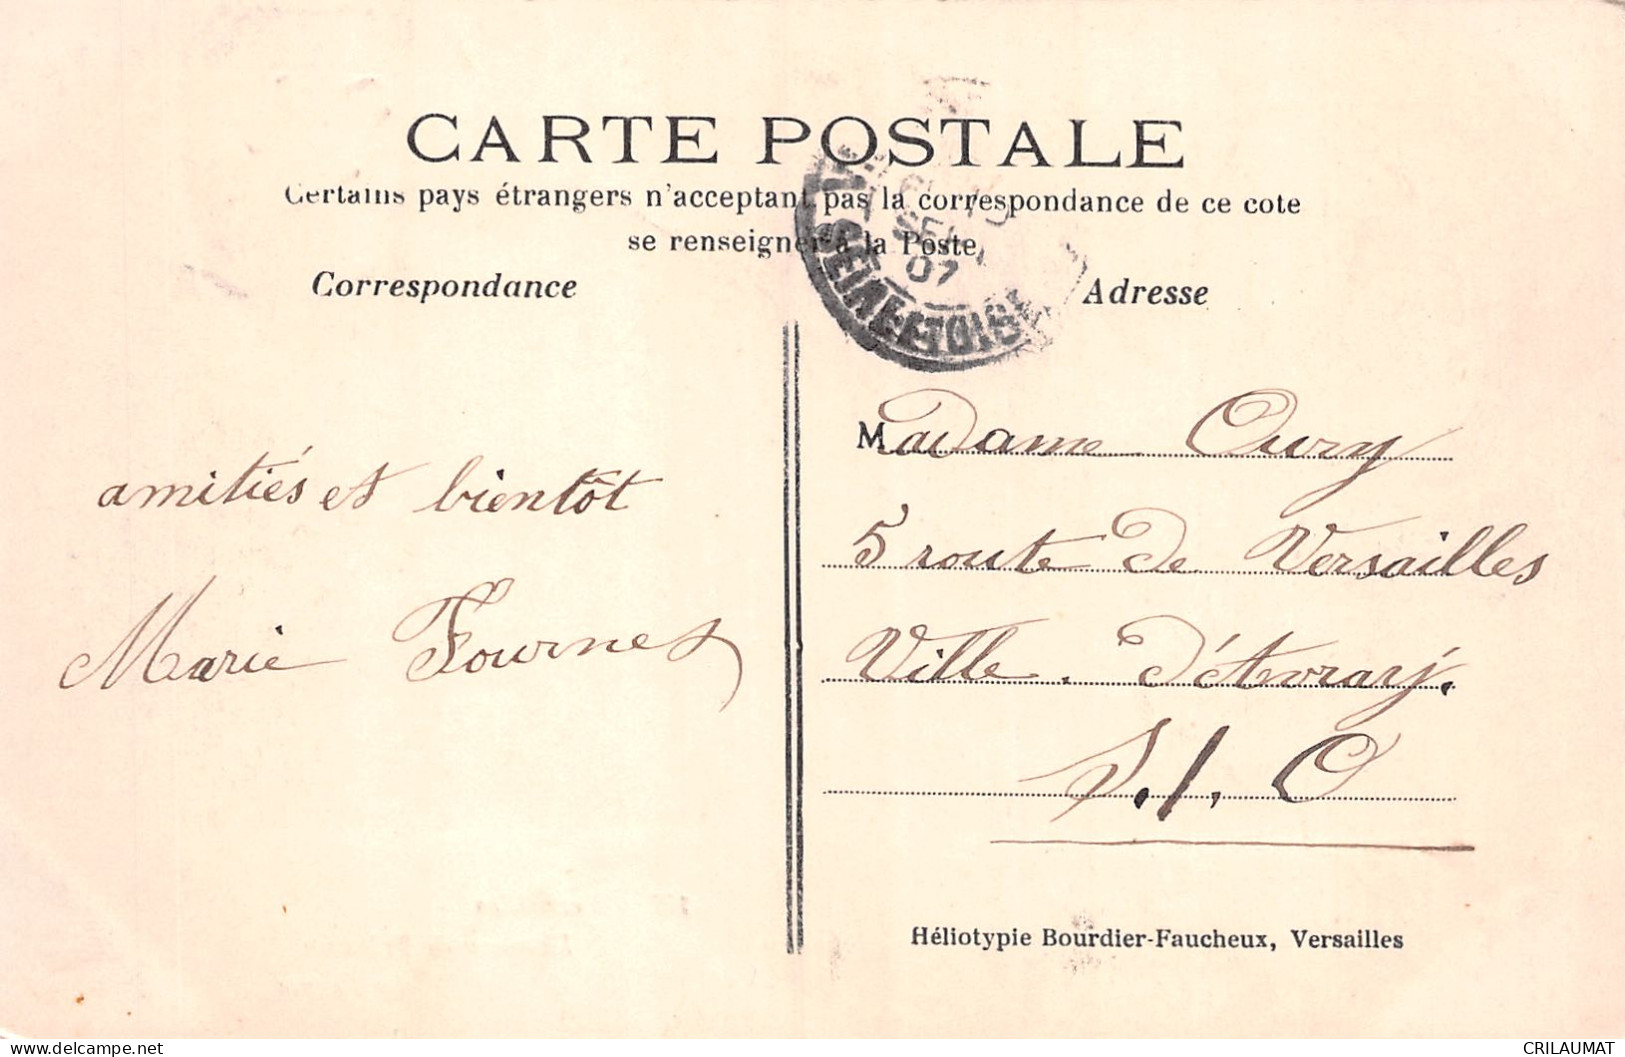 CARTE POSTALE
Certains pays étrangers n'acceptant pas la correspondance de ce cote
se renseigner à la Poste
Correspondance
Adresse
SEINE-ET-OISE
07
amitiés et bientôt
Marie Fournes
Madame Oury
5 route de Versailles
Ville. d'Avray.
S. / . O
Héliotypie Bourdier-Faucheux, Versailles
delcampe.net
CRILAUMAT